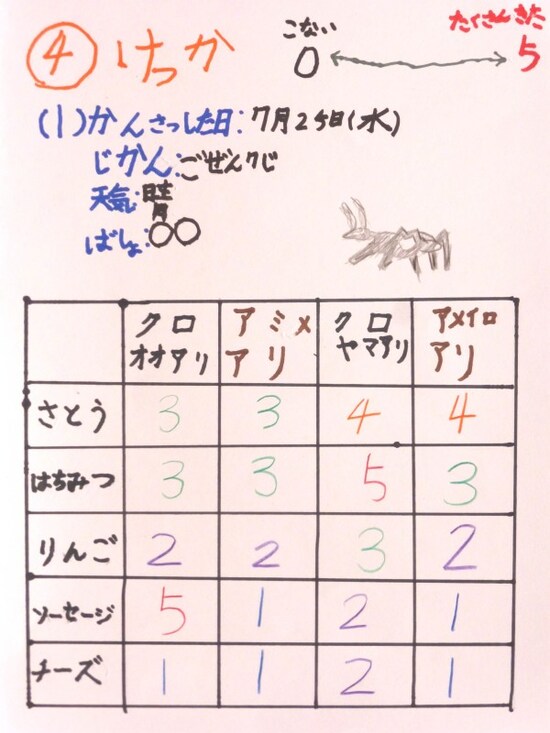 ④ けっか
こない たくさんきた
0 5
(1)かんさつした日:7月25日(水)
じかん:ごぜん9じ
天気:晴
ばしょ:○○
クロオオアリ アミメアリ クロヤマアリ アメイロアリ
さとう 3 3 4 4
はちみつ 3 3 5 3
りんご 2 2 3 2
ソーセージ 5 1 2 1
チーズ 1 1 2 1